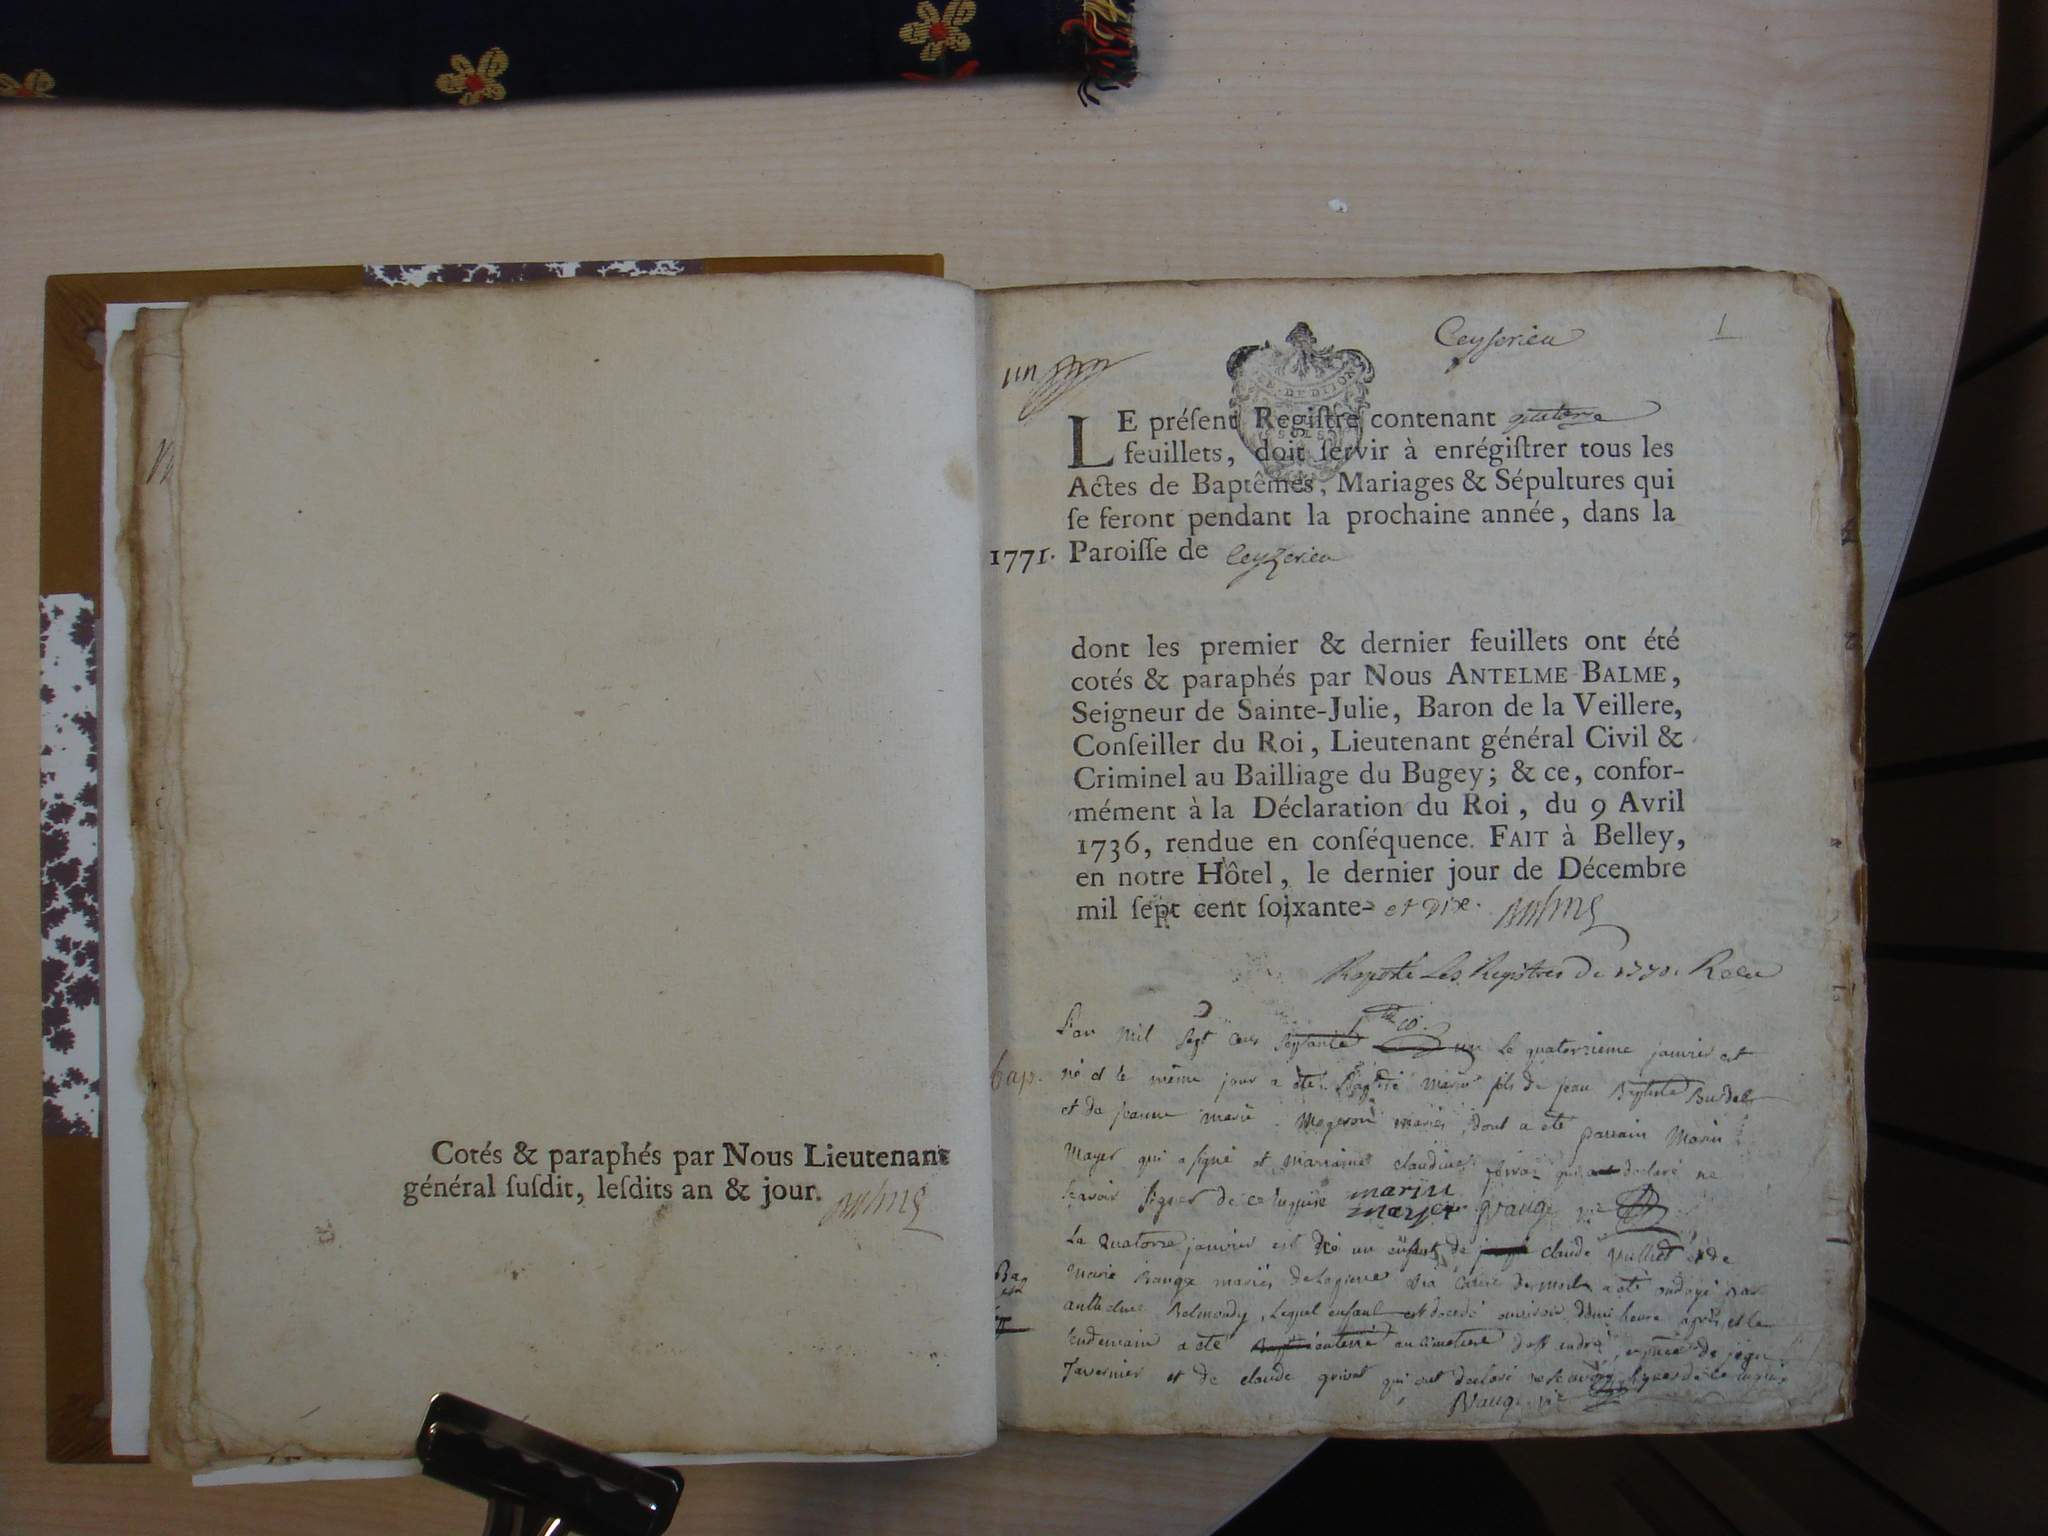 Cotés & paraphés par Nous Lieutenant
général ſuſdit, leſdits an & jour.
Ceyſerieu
1
un
DE DIJON
LE préſent Regiſtre contenant quatorze
feuillets, doit ſervir à enrégiſtrer tous les
Actes de Baptêmes, Mariages & Sépultures qui
ſe feront pendant la prochaine année, dans la
1771. Paroiſſe de Ceyzerieu
dont les premier & dernier feuillets ont été
cotés & paraphés par Nous ANTELME BALME,
Seigneur de Sainte-Julie, Baron de la Veillere,
Conſeiller du Roi, Lieutenant général Civil &
Criminel au Bailliage du Bugey; & ce, confor-
mément à la Déclaration du Roi, du 9 Avril
1736, rendue en conſéquence. FAIT à Belley,
en notre Hôtel, le dernier jour de Décembre
mil ſept cent ſoixante- et dix.
Les Registres De 1770.
L'an mil sept cens septante un le quatorzieme janvier est
bap. né et le même jour a été Baptisé Marin fils de jean Baptiste
et de jeanne marie mariés, dont a été parrain Marin
Mayer qui a signé et marraine claudine qui a declaré ne
scavoir signer de ce requise marin
mayer
Le quatorze janvier est né un enfant de claude et de
Marie mariés a été ondoyé par
anthelme lequel enfant est decedé environ demi heure après, et le
lendemain a été enterré au cimetiere de
Tavernier et de claude qui ont declaré ne scavoir signer de ce requis